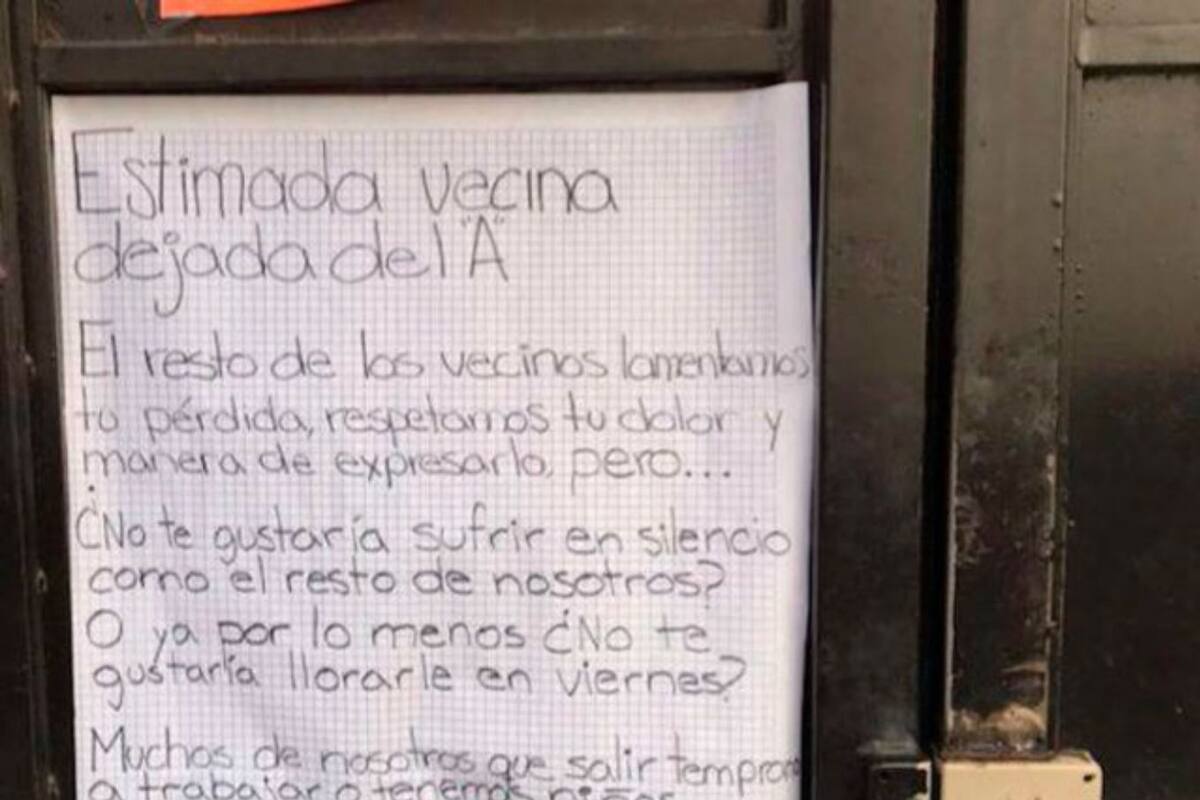 Estimada vecina
dejada del "A"
El resto de los vecinos lamentamos
tu pérdida, respetamos tu dolor y
manera de expresarlo, pero...
¿No te gustaría sufrir en silencio
como el resto de nosotros?
O ya por lo menos ¿No te
gustaría llorarle en viernes?
Muchos de nosotros que salir temprano
a trabajar o tenemos niños